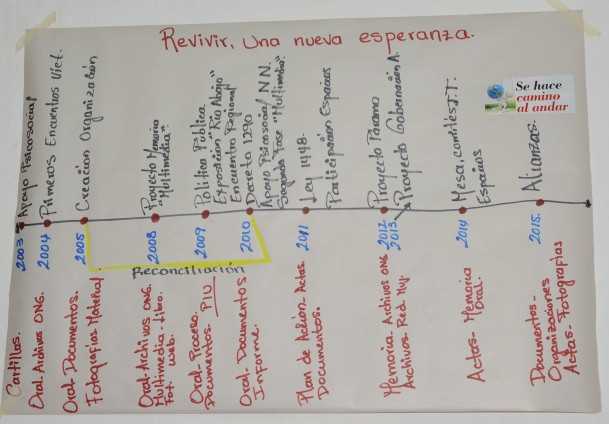 Revivir, Una nueva esperanza.
Se hace
camino
al andar
Apoyo Psicosocial
Primeros Encuentros Vict.
Creación Organización
Proyecto Memoria
"Multimedia"
Política Pública
Exposición "Río Abajo"
Encuentro Regional
Decreto 1290
Apoyo Psicosocial / N.N.
Segunda Fase "Multimedia"
Ley 1448.
Participación Espacios
Proyecto Páramo
Proyecto Gobernación A.
Mesa, comités J.T:
Espacios
Alianzas.
2003
2004
2005
2008
2009
2010
2011
2012
2013
2014
2015.
Reconciliación
Cartillas.
Oral. Archivos ONG.
Oral Documentos.
Fotografías Material
Oral. Archivos ONG.
Multimedia - Libro.
Fot. Web.
Oral- Proceso.
Documentos. PIU
Oral- Documentos
Informe.
Plan de Acción- Actas.
Documentos.
Memoria. Archivos ONG
Archivos. Red. Muj.
Actas- Memoria
Oral.
Documentos-
Organizaciones
Actas- Fotografías